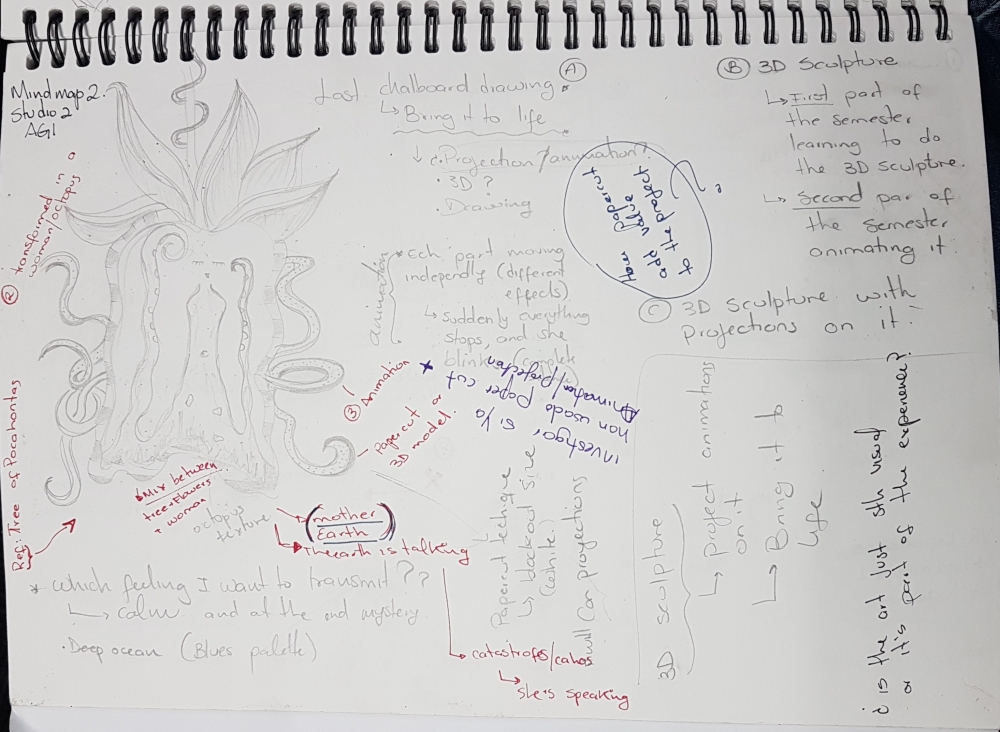 Mind map 2.
Studio 2
AGI
② transformed in a
woman/octopus
Ref: Tree of Pocahontas
Last chalboard drawing. Ⓐ
↳ Bring it to life
↓ Projection/animation?
· 3D?
· Drawing
animation
* Ech part moving
independly (different
effects)
↳ Suddenly everything
stops, and she
blink (complete
How Papercut
add value
to the project?
Ⓑ 3D Sculpture
↳ First part of
the semester
learning to do
the 3D sculpture.
↳ Second par of
the semester
animating it.
Ⓒ 3D Sculpture with
Projections on it.
③ Animation
Papercut or
3D model.
* investigar si ya
han usado Paper cut
Animation/projection
↳ Mix between
tree+flowers
+ woman
octopus
texture
(mother
Earth)
↳ The earth is talking
↳ catastrofes/cahos
↳ She's speaking
* Which feeling I want to transmit??
↳ calm and at the end mystery
· Deep ocean (Blues palette)
Papercut technique
↳ blackout size
(white)
will Can proyections
3D sculpture
↳ Project animations
on it
↳ Bring it to
life
¿ is the art just sth visual
or it's part of the experience?